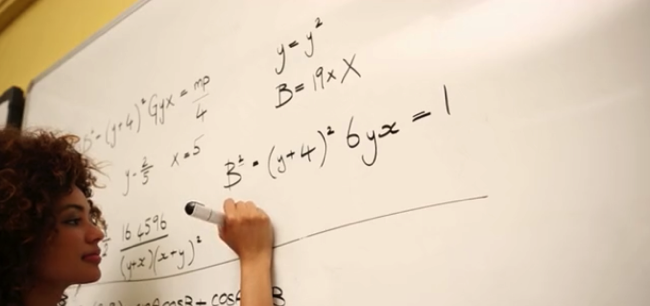 y = y²
B = 19 x X
B² - (y+4)² Gyx = mp/4
y - 2/5 x = 5
B² - (y+4)² 6yx = 1
16 4596
(y+x)(x+y)²